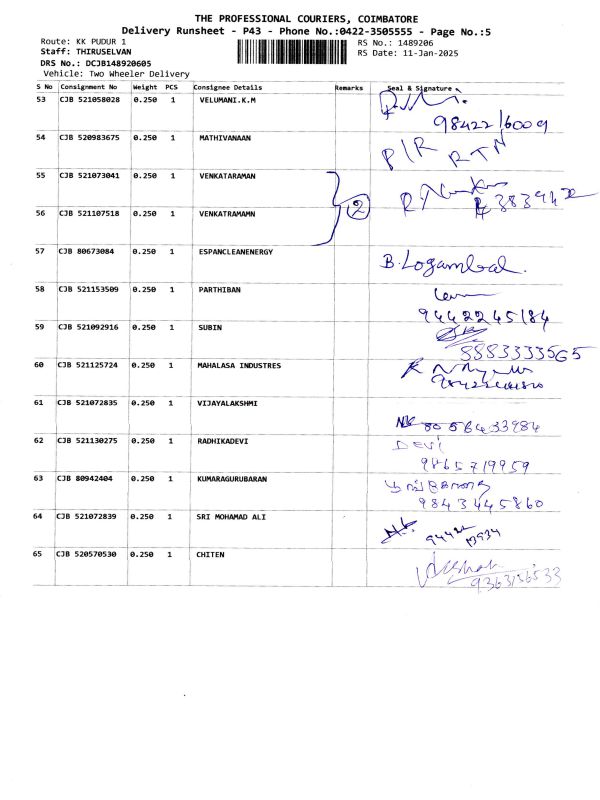 THE PROFESSIONAL COURIERS, COIMBATORE
Delivery Runsheet - P43 - Phone No.:0422-3505555 - Page No.:5
Route: KK PUDUR 1 RS No.: 1489206
Staff: THIRUSELVAN RS Date: 11-Jan-2025
DRS No.: DCJB148920605
Vehicle: Two Wheeler Delivery
S No Consignment No Weight PCS Consignee Details Remarks Seal & Signature
53 CJB 521058028 0.250 1 VELUMANI.K.M
98422 16009
54 CJB 520983675 0.250 1 MATHIVANAAN P/R RTN
55 CJB 521073041 0.250 1 VENKATARAMAN
2
56 CJB 521107518 0.250 1 VENKATRAMAMN
57 CJB 80673084 0.250 1 ESPANCLEANENERGY B.Logambal.
58 CJB 521153509 0.250 1 PARTHIBAN
9442245184
59 CJB 521092916 0.250 1 SUBIN
8883333565
60 CJB 521125724 0.250 1 MAHALASA INDUSTRES
61 CJB 521072835 0.250 1 VIJAYALAKSHMI
62 CJB 521130275 0.250 1 RADHIKADEVI DEVI
9865719959
63 CJB 80942404 0.250 1 KUMARAGURUBARAN
9843445860
64 CJB 521072839 0.250 1 SRI MOHAMAD ALI
65 CJB 520570530 0.250 1 CHITEN